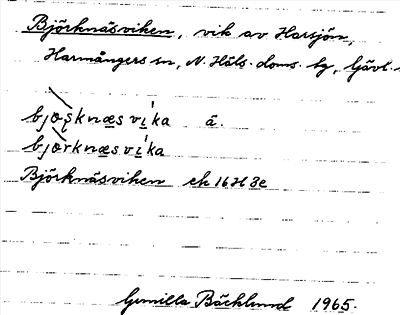 Björknäsviken, vik av Harsjön,
Harmångers sn, N. Häls. doms. hg, Gävl.
bjo̱ʂknæsvi̱ka ä.
bjo̱rknæsvi̱ka
Björknäsviken ek 16H 3e
Gunilla Bäcklund 1965.